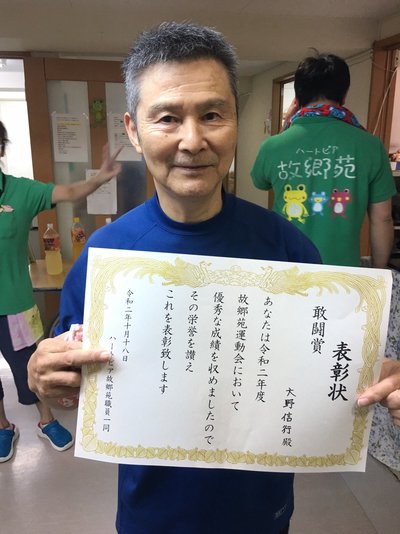 表彰状
敢闘賞
大野信行殿
あなたは令和二年度
故郷苑運動会において
優秀な成績を収めましたので
その栄誉を讃え
これを表彰致します
令和二年十月十八日
ハートピア故郷苑職員一同
ハートピア
故郷苑